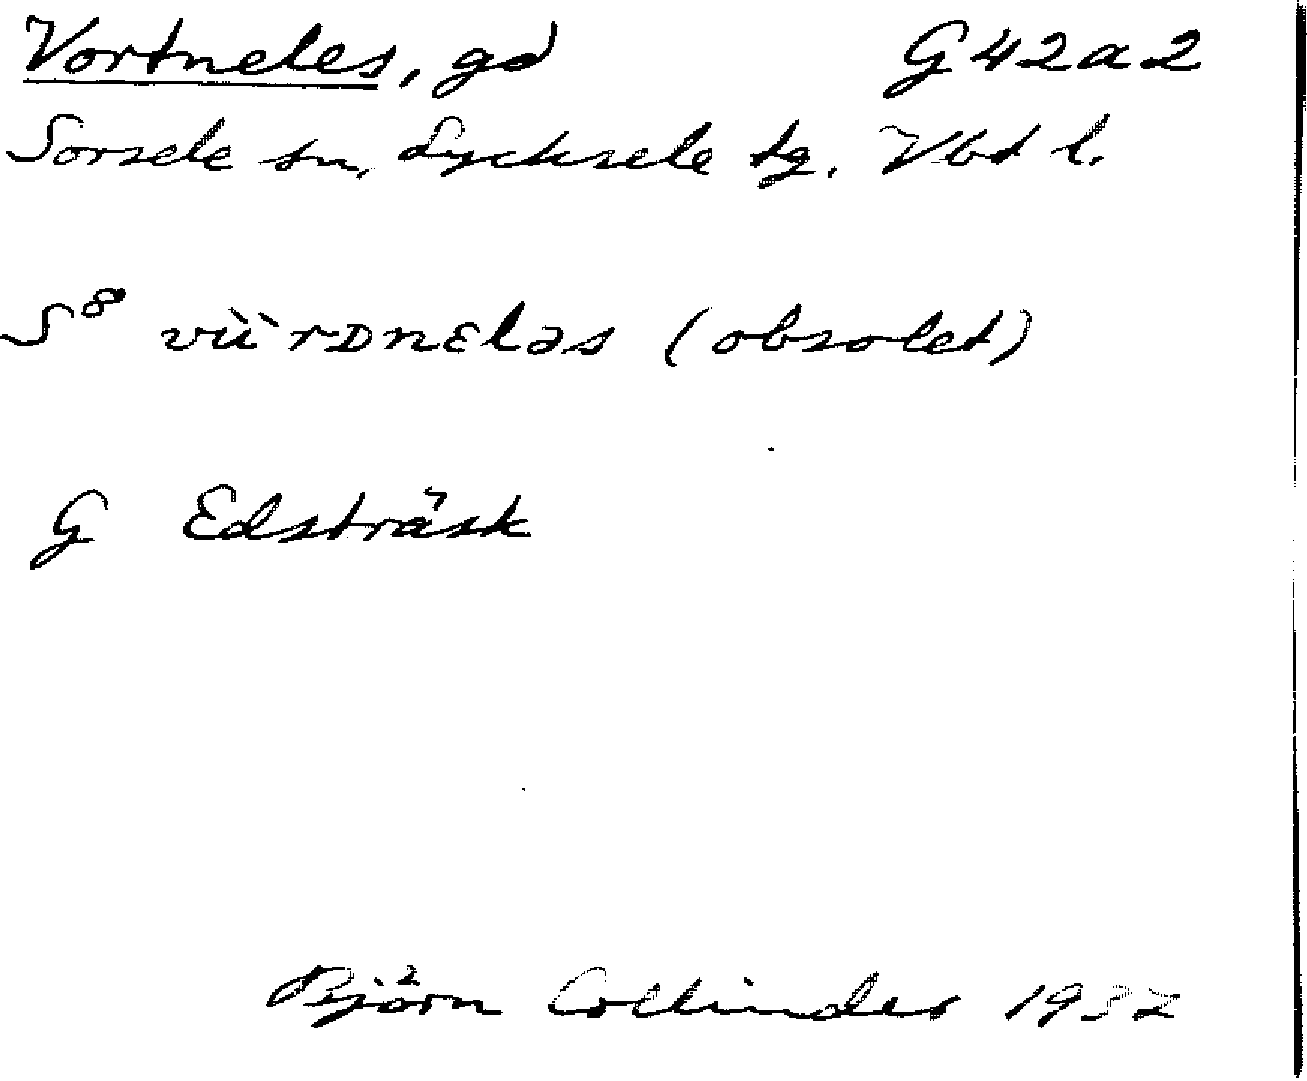 Vortneles, gd G42a2
Sorsele sn, Lycksele tg. Vbt l.
S⁸ vùrᴅnɛləs (obsolet)
G Edsträsk
Björn Collinder 1937